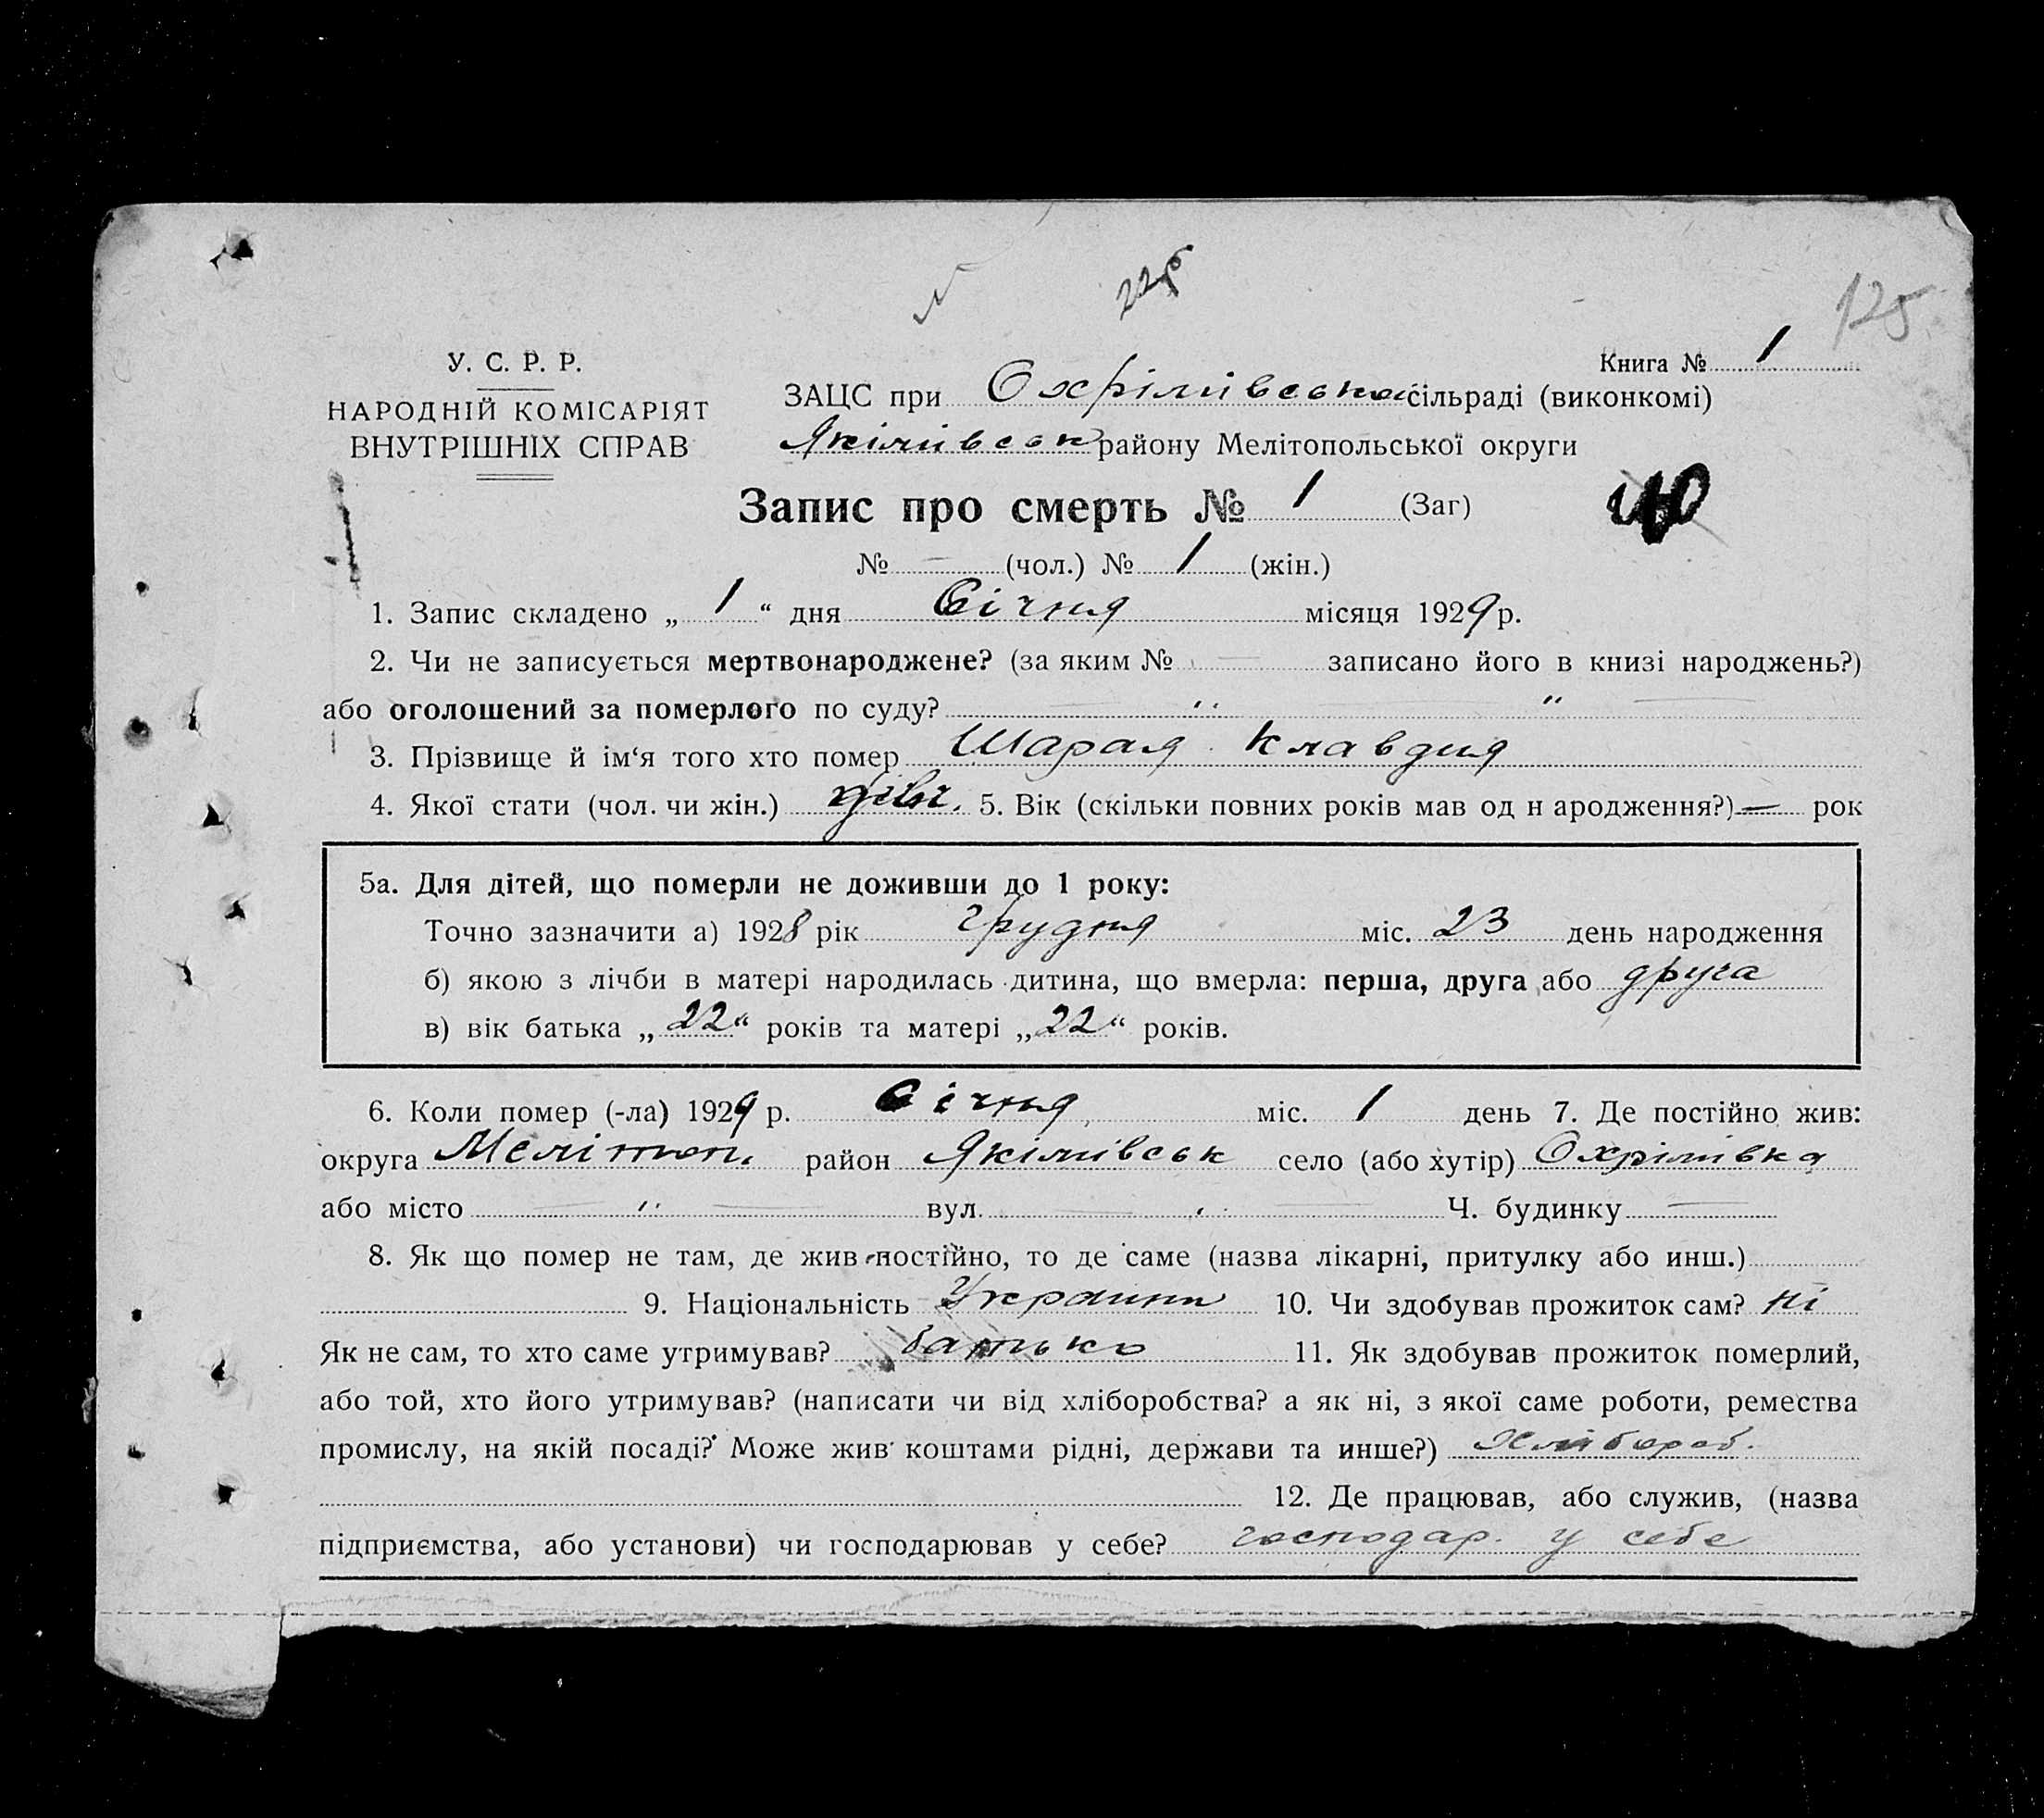 125
У. С. Р. Р.
НАРОДНІЙ КОМІСАРІЯТ
ВНУТРІШНІХ СПРАВ
Книга № 1
ЗАЦС при Охрімівській сільраді (виконкомі)
Якимівськ району Мелітопольської округи
Запис про смерть № 1 (Заг)
№ — (чол.) № 1 (жін.)
1. Запис складено „ 1 “ дня Січня місяця 1929 р.
2. Чи не записується мертвонароджене? (за яким № — записано його в книзі народжень?)
або оголошений за померлого по суду? — " — " —
3. Прізвище й ім‘я того хто помер Шарая Клавдия
4. Якої стати (чол. чи жін.) дівч. 5. Вік (скільки повних років мав од н ародження?) — рок
5а. Для дітей, що померли не доживши до 1 року:
Точно зазначити а) 1928 рік Грудня міс. 23 день народження
б) якою з лічби в матері народилась дитина, що вмерла: перша, друга або друга
в) вік батька „ 22 “ років та матері „ 22 “ років.
6. Коли помер (-ла) 1929 р. Січня міс. 1 день 7. Де постійно жив:
округа Мелітоп. район Якімівськ село (або хутір) Охрімівка
або місто — " — вул. — " — Ч. будинку —
8. Як що помер не там, де жив постійно, то де саме (назва лікарні, притулку або инш.)
9. Національність Украинк 10. Чи здобував прожиток сам? ні
Як не сам, то хто саме утримував? батько 11. Як здобував прожиток померлий,
або той, хто його утримував? (написати чи від хліборобства? а як ні, з якої саме роботи, ремества
промислу, на якій посаді? Може жив коштами рідні, держави та инше?) Хлібороб.
12. Де працював, або служив, (назва
підприємства, або установи) чи господарював у себе? господар. у себе